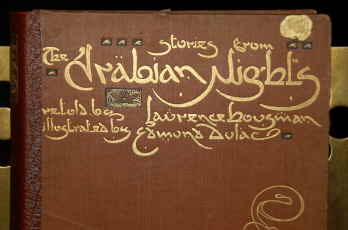 Stories from
The Arabian Nights
retold by Laurence Housman
illustrated by Edmund Dulac